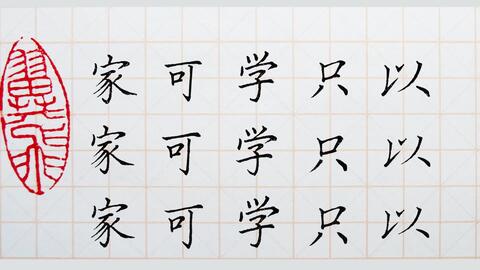 家可学只以
家可学只以
家可学只以